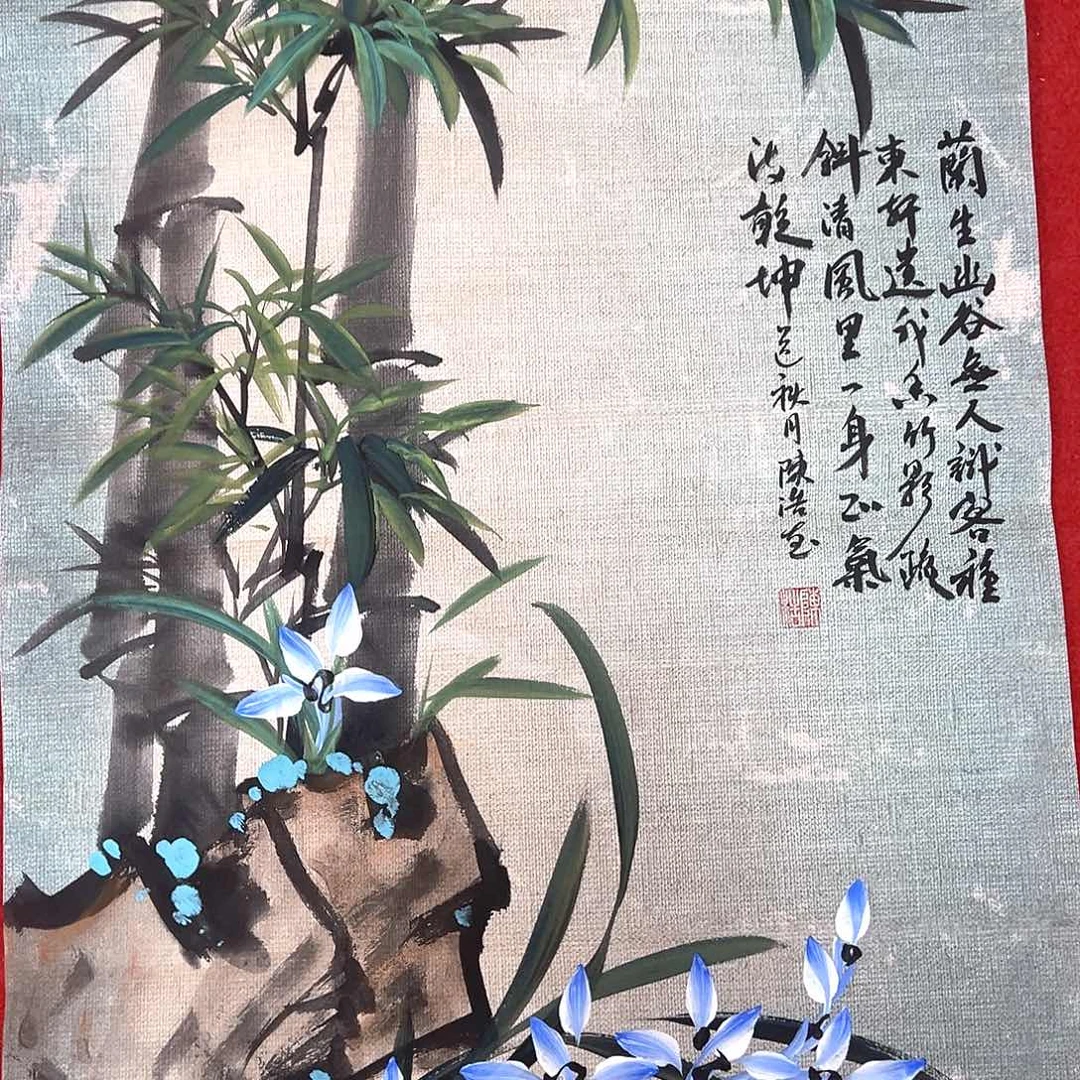 蘭生幽谷無人識客種
東軒遺我香竹影疏
斜清風里一身正氣
乾坤 秋月陳浩画